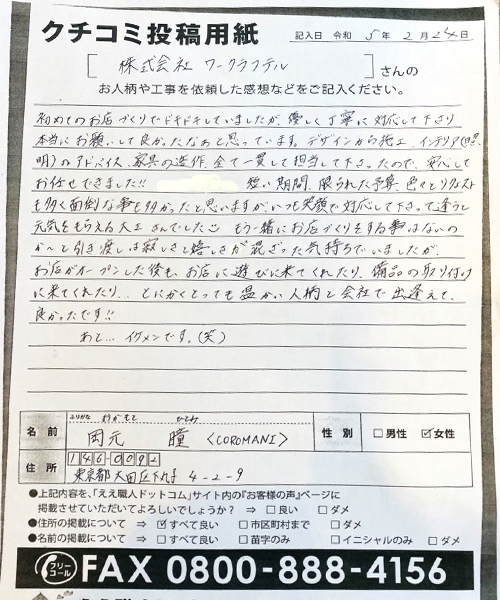 クチコミ投稿用紙
記入日 令和 5年 2月 24日
[ 株式会社 ワークラフテル ]さんの
お人柄や工事を依頼した感想などをご記入ください。
初めてのお店づくりでドキドキしていましたが、優しく丁寧に対応して下さり
本当にお願いして良かったなぁと思っています。デザインから施工、インテリア(照
明)のアドバイス、家具の造作、全て一貫して担当して下さったので、安心して
お任せできました!! 短い期間、限られた予算、色々とリクエスト
も多く面倒な事も多かったと思いますがいつも笑顔で対応して下さって逢うと
元気をもらえる大工さんでした☺ もう一緒にお店づくりをする事はないの
か〜と引き渡しは寂しさと嬉しさが混ざった気持ちでいましたが、
お店がオープンした後も、お店に遊びに来てくれたり、備品の取り付け
に来てくれたり… とにかくとっても温かい人柄と会社で出逢えて、
良かったです!!
あと… イケメンです。(笑)
ふりがな おかもと ひとみ
名前 岡元 瞳 <COROMANI> 性別 □男性 ☑女性
住所 146-0092
東京都大田区下丸子 4-2-9
●上記内容を、「ええ職人ドットコム」サイト内の『お客様の声』ページに
掲載させていただいてよろしいでしょうか? ⇒ □良い □ダメ
●住所の掲載について ⇒ ☑すべて良い □市区町村まで □ダメ
●名前の掲載について ⇒ □すべて良い □苗字のみ □イニシャルのみ □ダメ
フリーコール FAX 0800-888-4156